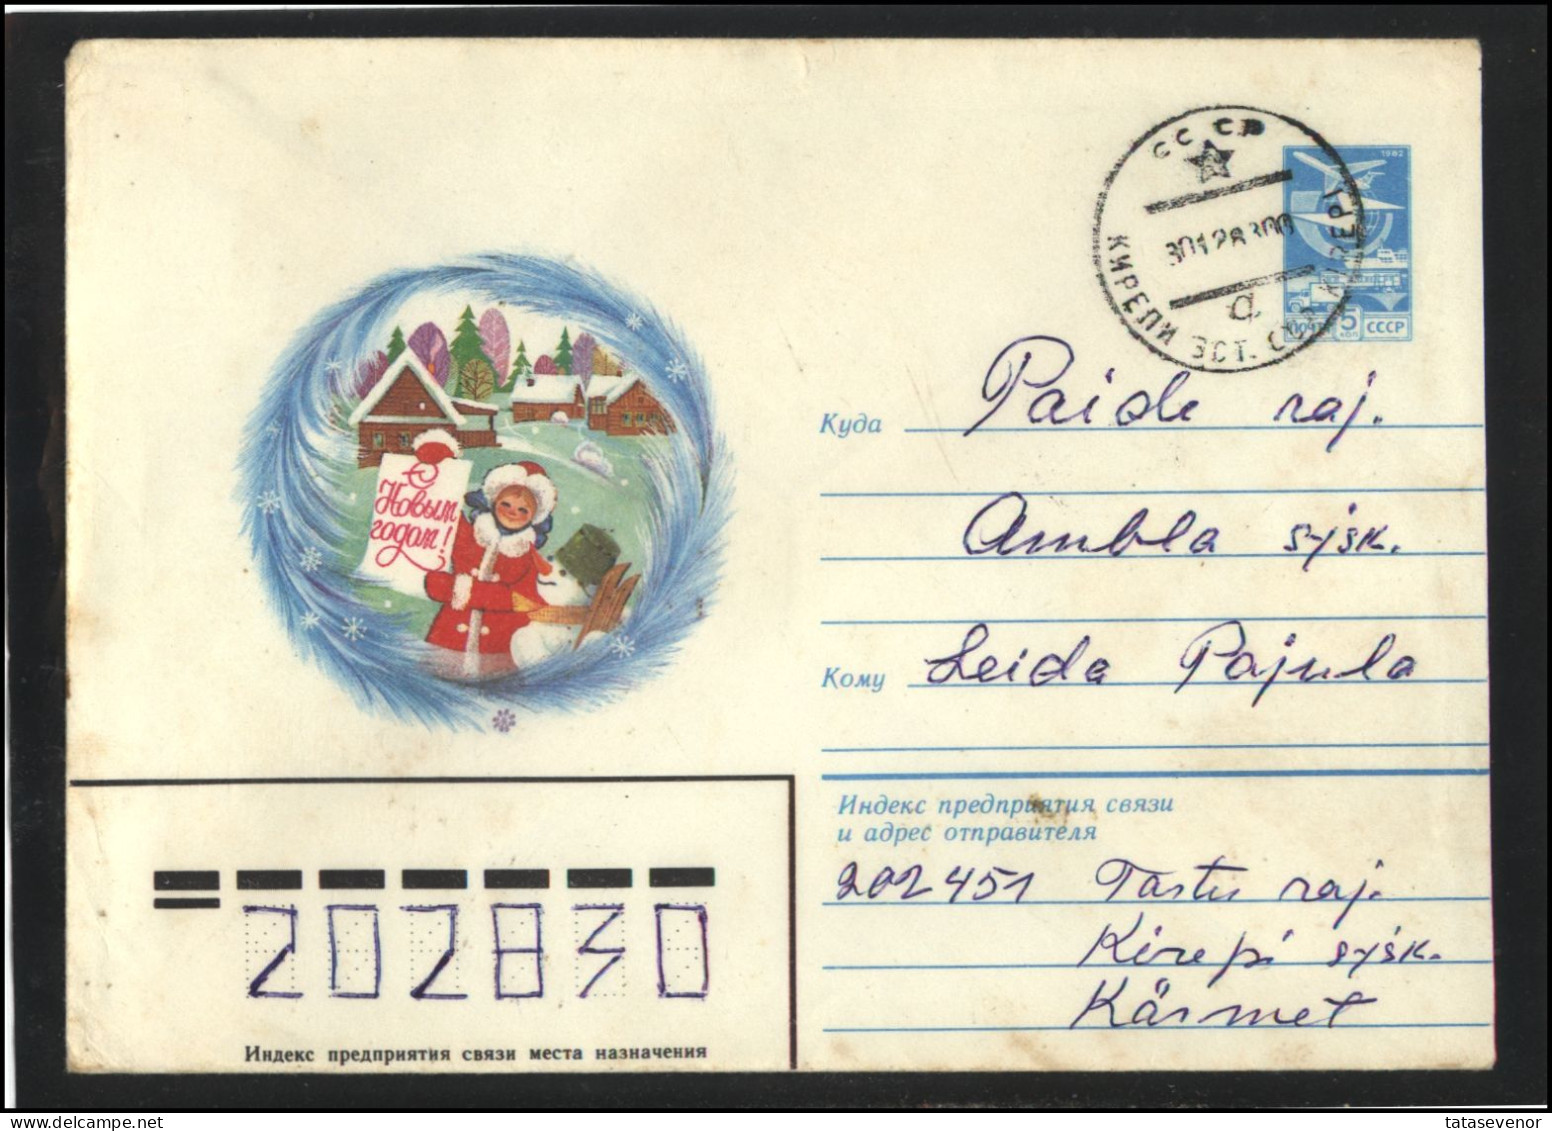 СССР
30128300
КИРЕПИ ЭСТ. ССР KIREPI
а
1982
ПОЧТА 5 коп СССР
С
Новым
годом!
Куда Paide raj.
Ambla s-jsk.
Кому Leida Pajula
Индекс предприятия связи
и адрес отправителя
202451 Tartu raj.
Kirepi s/jsk.
Kärmet
202830
Индекс предприятия связи места назначения
tatasevenor